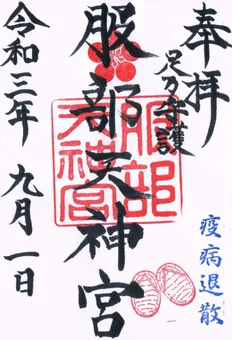 奉拝
足乃守護
疫病退散
服部天神宮
服部天神宮
令和三年 九月一日